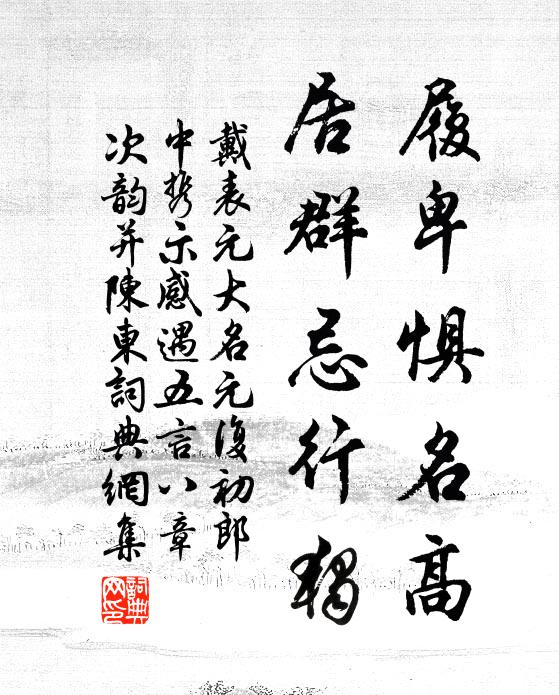 履卑惧名高
居群忌行独
戴表元大名元復初郎
中携示感遇五言八章
次韵并陳東詞典網集
詞典網印